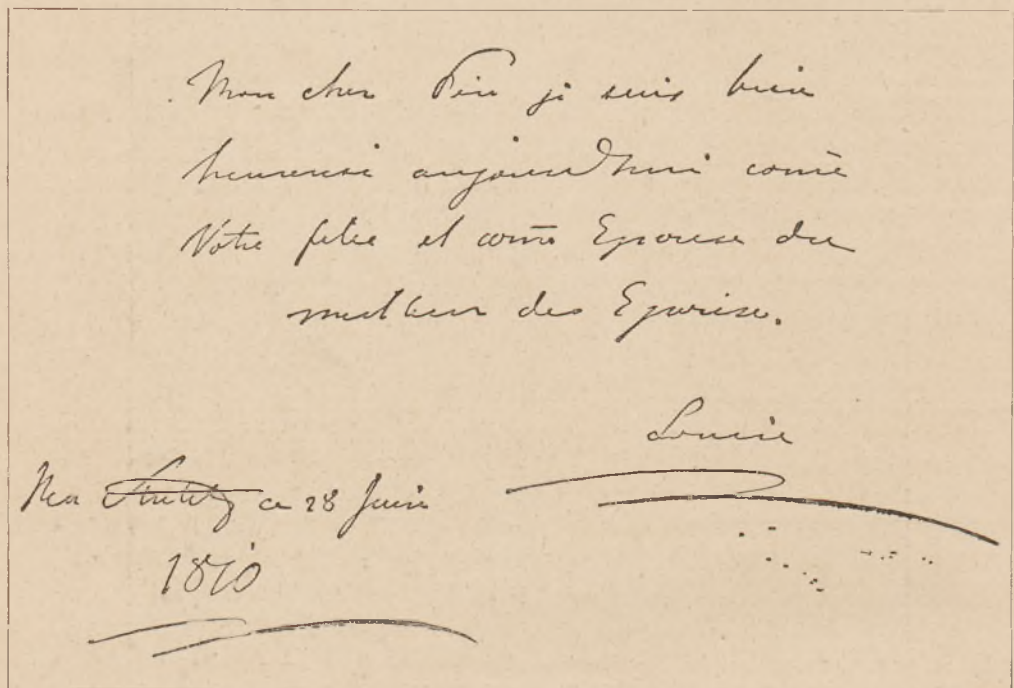 Mon cher Père je suis bien
heureuse aujourd'hui come
Votre fille et come Epouse du
meilleur des Epouse.
Louise
Neu Strelitz ce 28 Juin
1810